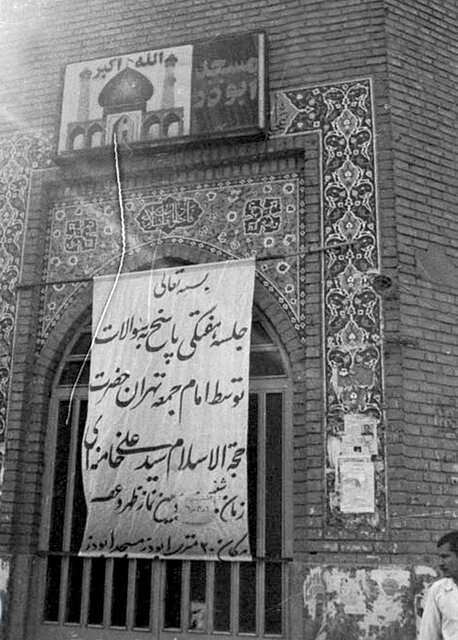 الله اکبر
مسجد
ابوذر
بسمه تعالی
جلسه هفتگی پاسخ بسوالات
توسط امام جمعه تهران حضرت
حجة الاسلام سید علی خامنه‌ای
زمان: شنبه بین نماز ظهر و عصر
مکان ۲۰ متری ابوذر مسجد ابوذر